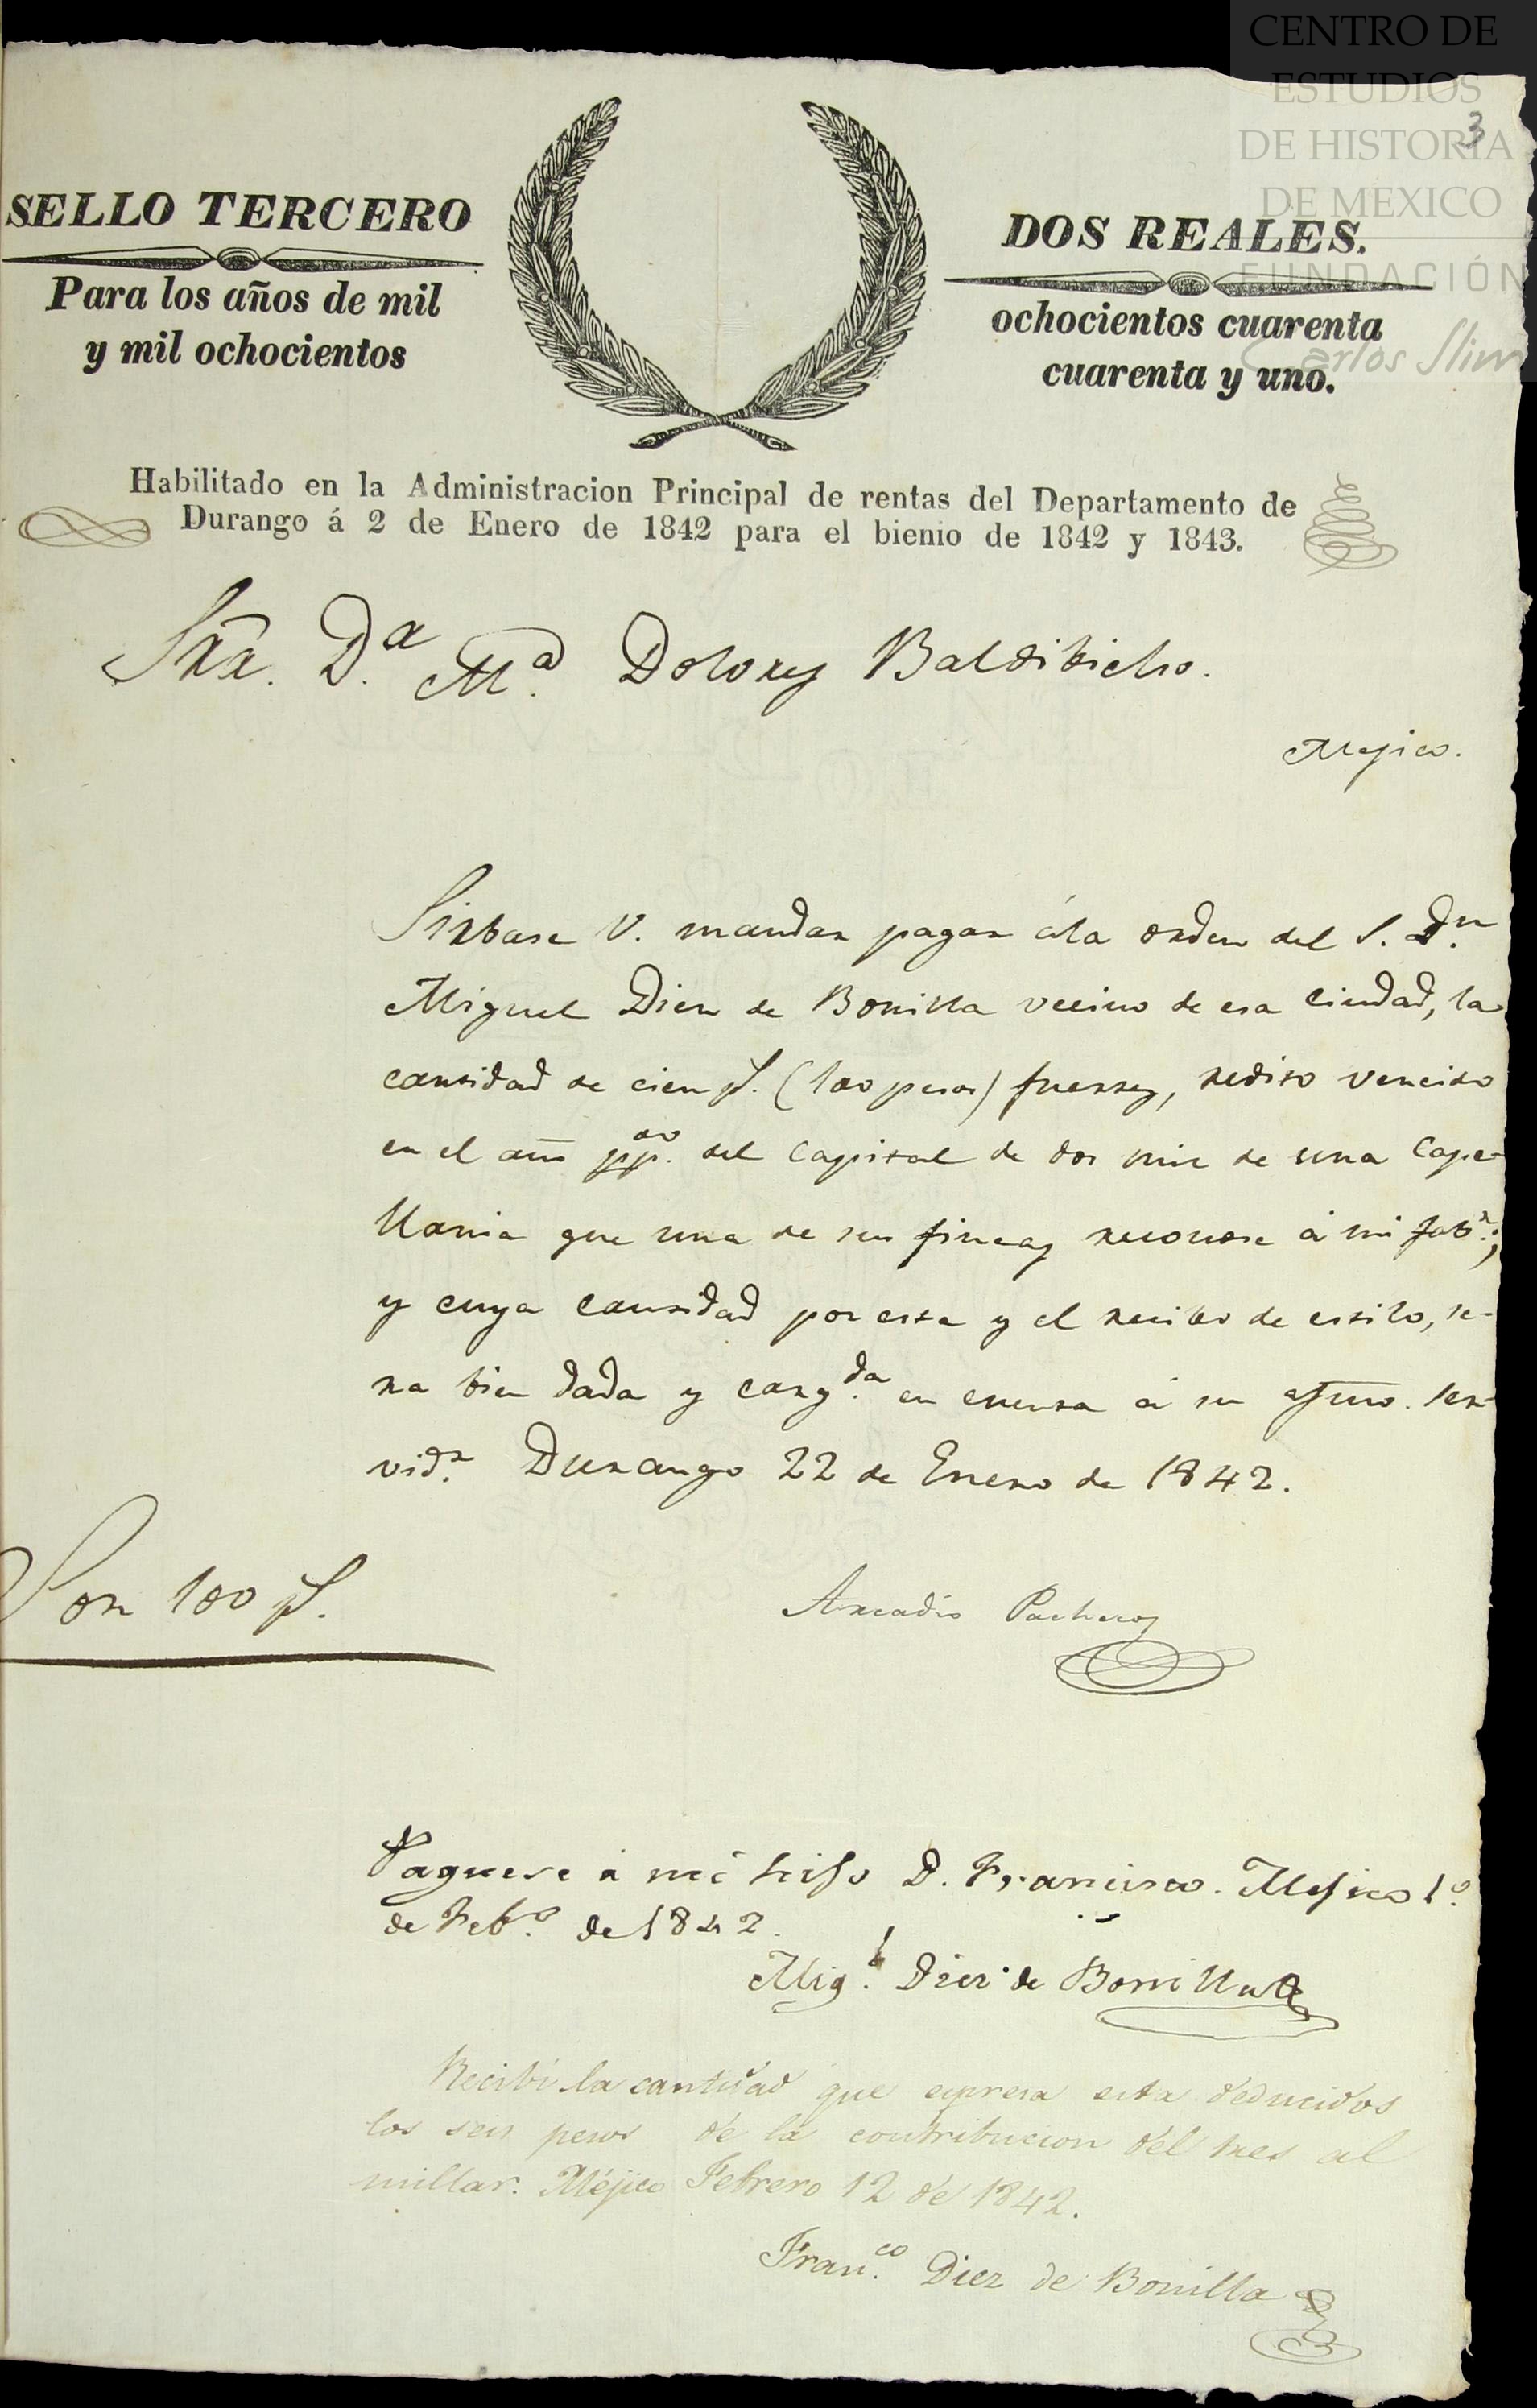 CENTRO DE
ESTUDIOS
DE HISTORIA
DE MEXICO
FUNDACIÓN
Carlos Slim
3
SELLO TERCERO
DOS REALES.
Para los años de mil
ochocientos cuarenta
y mil ochocientos
cuarenta y uno.
Habilitado en la Administracion Principal de rentas del Departamento de
Durango á 2 de Enero de 1842 para el bienio de 1842 y 1843.
Sra. D.ª M.ª Dolores Baldibielso.
Mejico.
Sirbase V. mandar pagar á la orden del S. D.n
Miguel Diez de Bonilla vecino de esa Ciudad, la
cantidad de cien p.s (100 pesos) fuertes, redito vencido
en el año pp.do del Capital de dos mil de una Cape-
llania que una de sus fincas reconose á mi fab.r;
y cuya cantidad por esta y el recibo de estilo, se-
ra bien dada y carg.da en cuenta á su afmo. ser-
vid.r Durango 22 de Enero de 1842.
Son 100 p.s
Arcadio Pacheco
Paguese á mi hijo D. Francisco. Mejico 1.º
de Feb.º de 1842.
Mig.l Diez de Bonilla
Recibí la cantidad que espresa esta deducidos
los seis pesos de la contribucion del tres al
millar. Méjico Febrero 12 de 1842.
Fran.co Diez de Bonilla